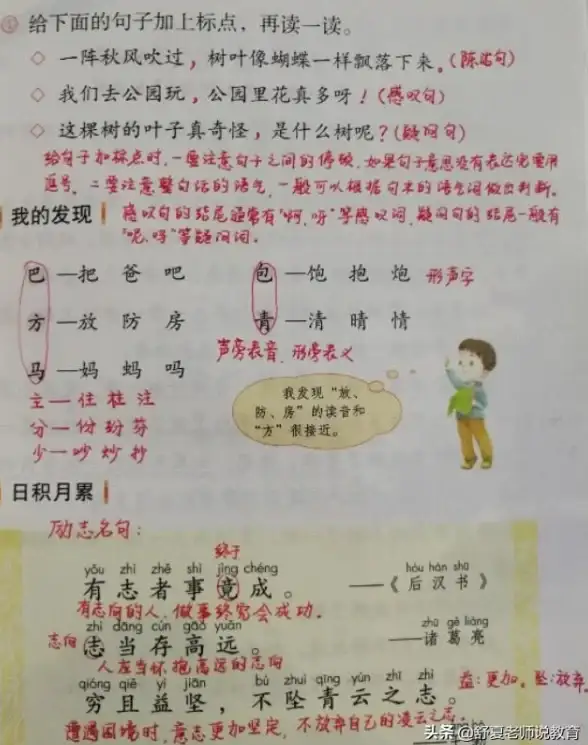 给下面的句子加上标点，再读一读。
◇ 一阵秋风吹过，树叶像蝴蝶一样飘落下来。(陈述句)
◇ 我们去公园玩，公园里花真多呀！(感叹句)
◇ 这棵树的叶子真奇怪，是什么树呢？(疑问句)
给句子加标点时，一要注意句子之间的停顿，如果句子意思没有表达完要用
逗号。二要注意整句话的语气，一般可以根据句末的语气词做出判断。
我的发现
感叹句的结尾通常有"啊、呀"等感叹词，疑问句的结尾一般有
"呢、吗"等疑问词。
巴—把 爸 吧 包—饱 抱 炮 形声字
方—放 防 房 青—清 晴 情
声旁表音，形旁表义
马—妈 蚂 吗
主—住 柱 注
分—份 纷 芬
少—吵 炒 抄
我发现"放、
防、房"的读音和
"方"很接近。
日积月累
励志名句：
终于
yǒu zhì zhě shì jìng chéng hòu hàn shū
有志者事竟成。 ——《后汉书》
有志向的人，做事终究会成功。
zhì dāng cún gāo yuǎn zhū gě liàng
志向 志当存高远。 ——诸葛亮
人应当怀抱高远的志向
qióng qiě yì jiān bù zhuì qīng yún zhī zhì
益：更加。坠：放弃
穷且益坚，不坠青云之志。
遭遇困境时，意志更加坚定，不放弃自己的凌云之志。
头条 @舒夏老师说教育